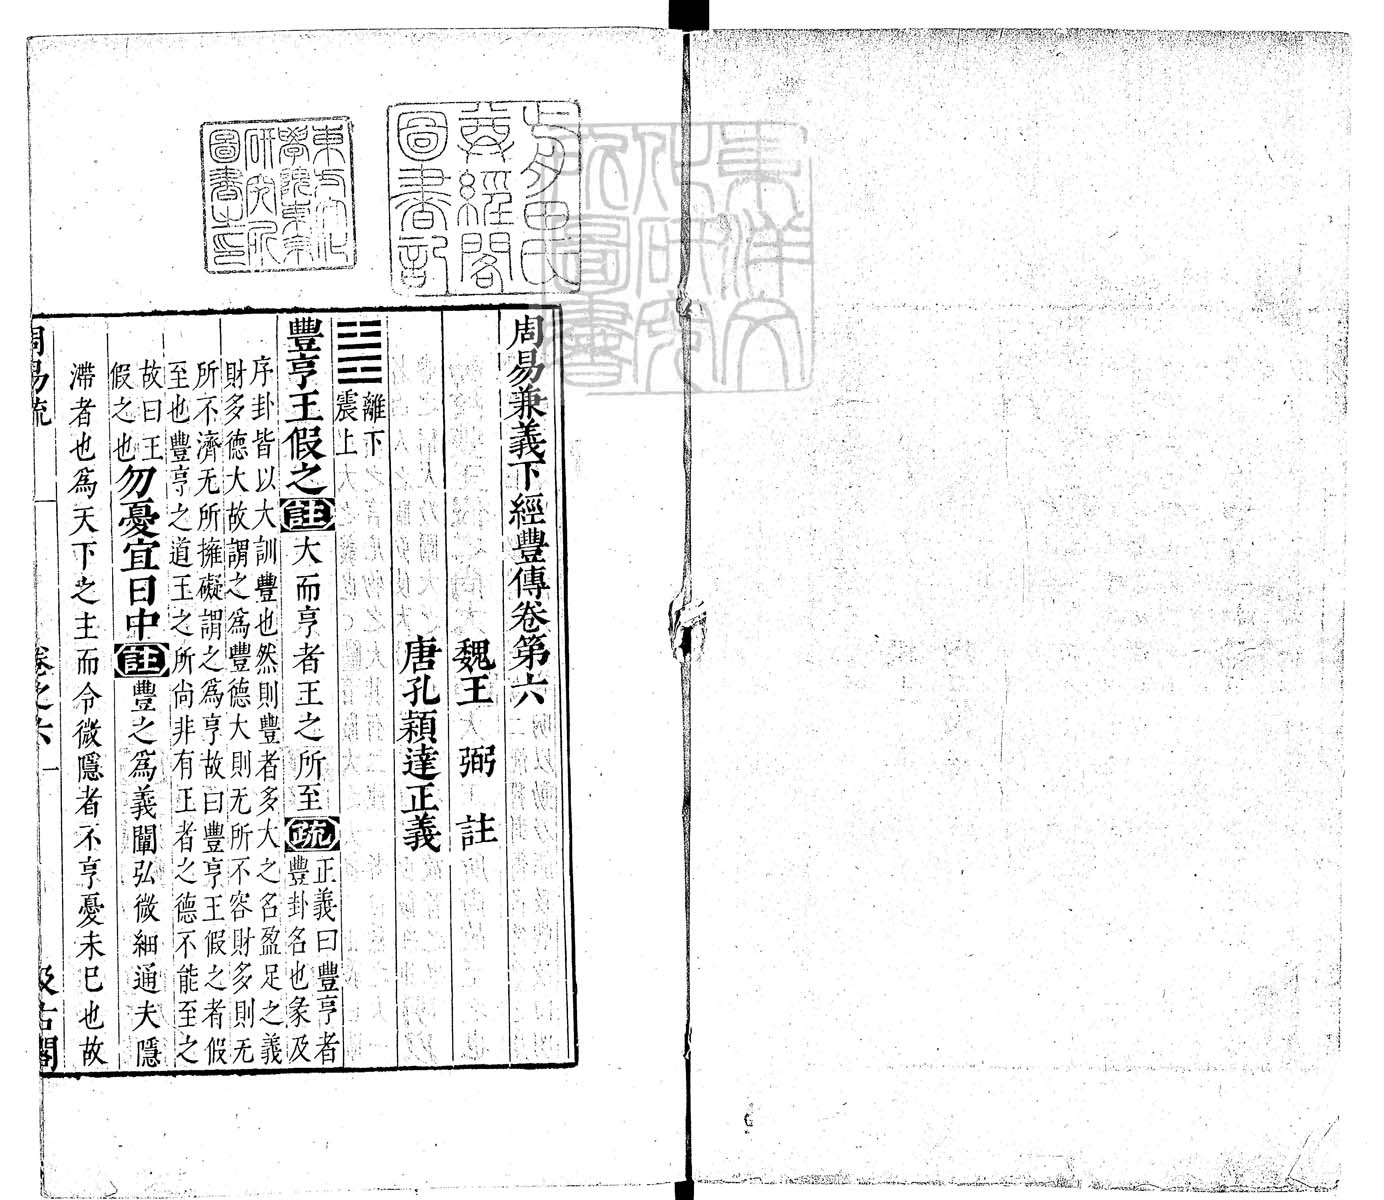 周易兼義下經豐傳卷第六
魏王弼註
唐孔穎達正義
離下
震上
豐亨王假之註大而亨者王之所至疏正義曰豐亨者
豐卦名也彖及
序卦皆以大訓豐也然則豐者多大之名盈足之義
財多德大故謂之為豐德大則无所不容財多則无
所不濟无所擁礙謂之為亨故曰豐亨王假之者假
至也豐亨之道王之所尚非有王者之德不能至之
故曰王
假之也勿憂宜日中註豐之為義闡弘微細通夫隱
滯者也為天下之主而令微隱者不亨憂未已也故
周易疏 卷之六 一 汲古閣
前田氏
尊經閣
圖書記
東方文化
學院東京
研究所
圖書之印
東洋文
化研究
所圖書